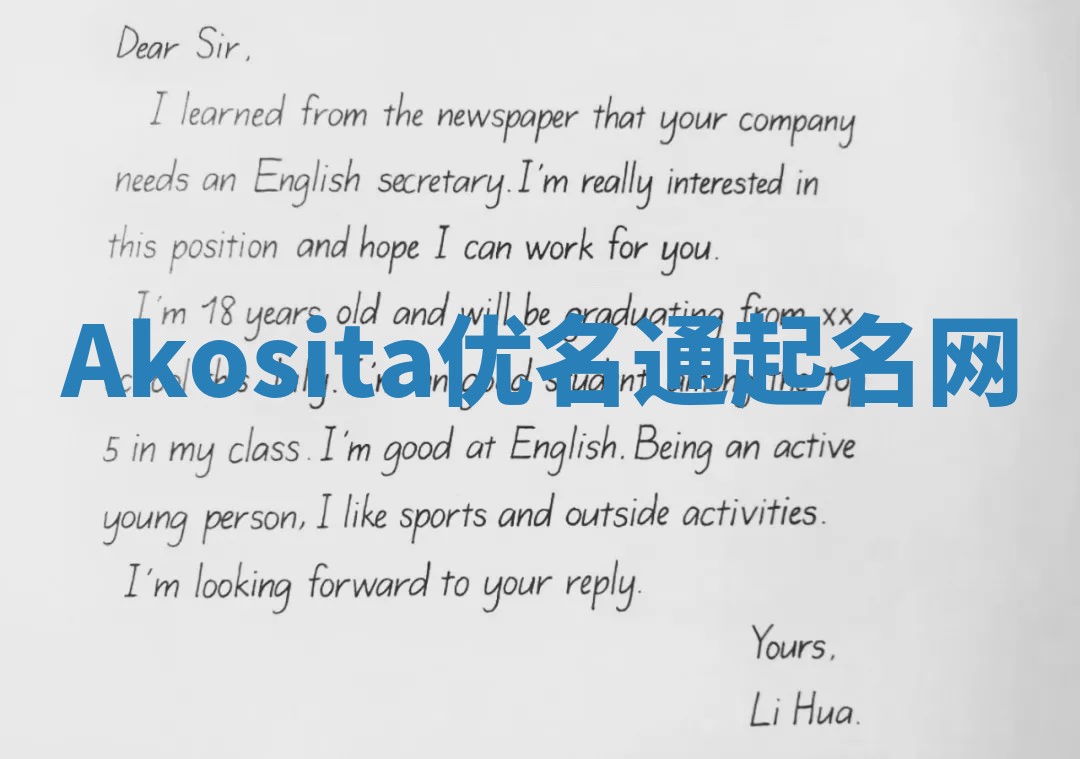 Dear Sir,
I learned from the newspaper that your company
needs an English secretary. I'm really interested in
this position and hope I can work for you.
I'm 18 years old and will be graduating from xx
Akosita优名通起名网
school this July. I'm an good student among the top
5 in my class. I'm good at English. Being an active
young person, I like sports and outside activities.
I'm looking forward to your reply.
Yours,
Li Hua.